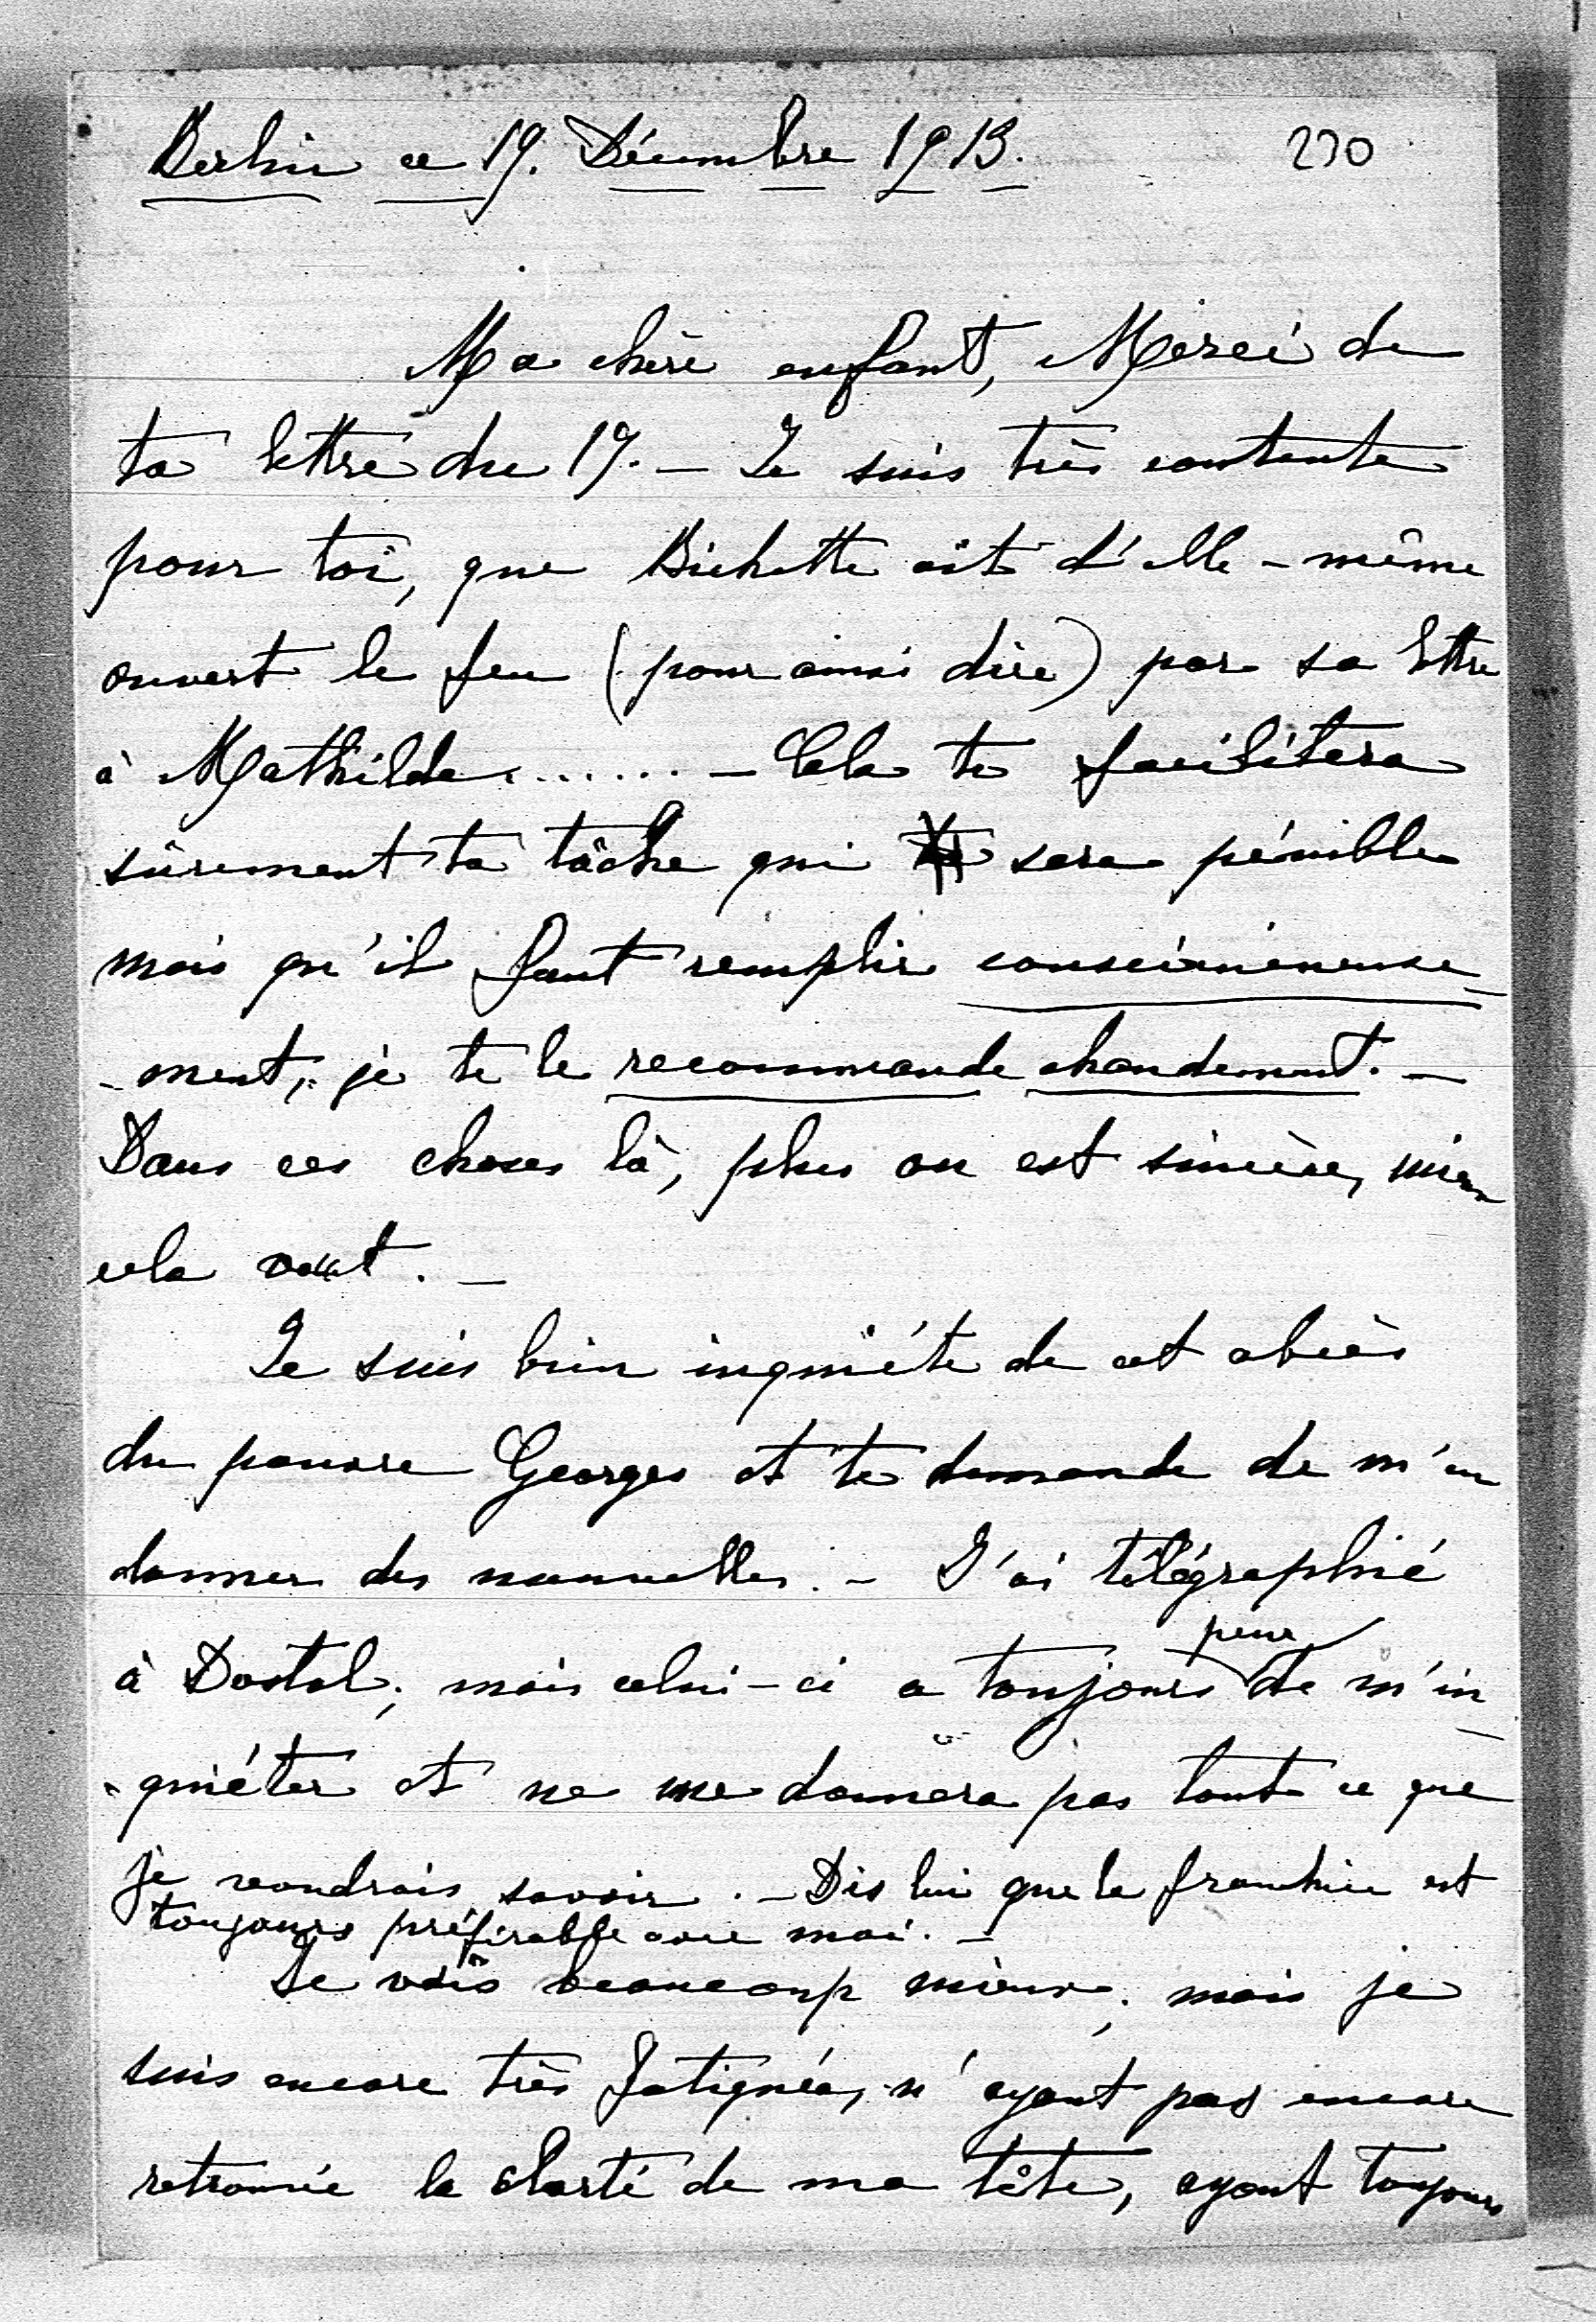 Berlin ce 19. Décembre 1913. 230
Ma chère enfant, Merci de
ta lettre du 17. — Je suis très contente
pour toi, que Bichette ait d'elle-même
ouvert le feu (pour ainsi dire) par sa lettre
à Mathilde ....... — Cela te facilitera
sûrement ta tâche qui sera pénible
mais qu'il faut remplir consciencieuse-
-ment, je te le recommande chaudement. —
Dans ces choses là, plus on est sincère, mieux
cela vaut. —
Je suis bien inquiète de cet abcès
du pauvre Georges et te demande de m'en
donner des nouvelles. — J'ai télégraphié
à Dostal; mais celui-ci a toujours peur de m'in-
-quiéter et ne me donnera pas tout ce que
je voudrais savoir. — Dis lui que la franchise est
toujours préférable avec moi. —
Je vais beaucoup mieux; mais je
suis encore très fatiguée, n'ayant pas encore
retrouvée la clarté de ma tête, ayant toujours